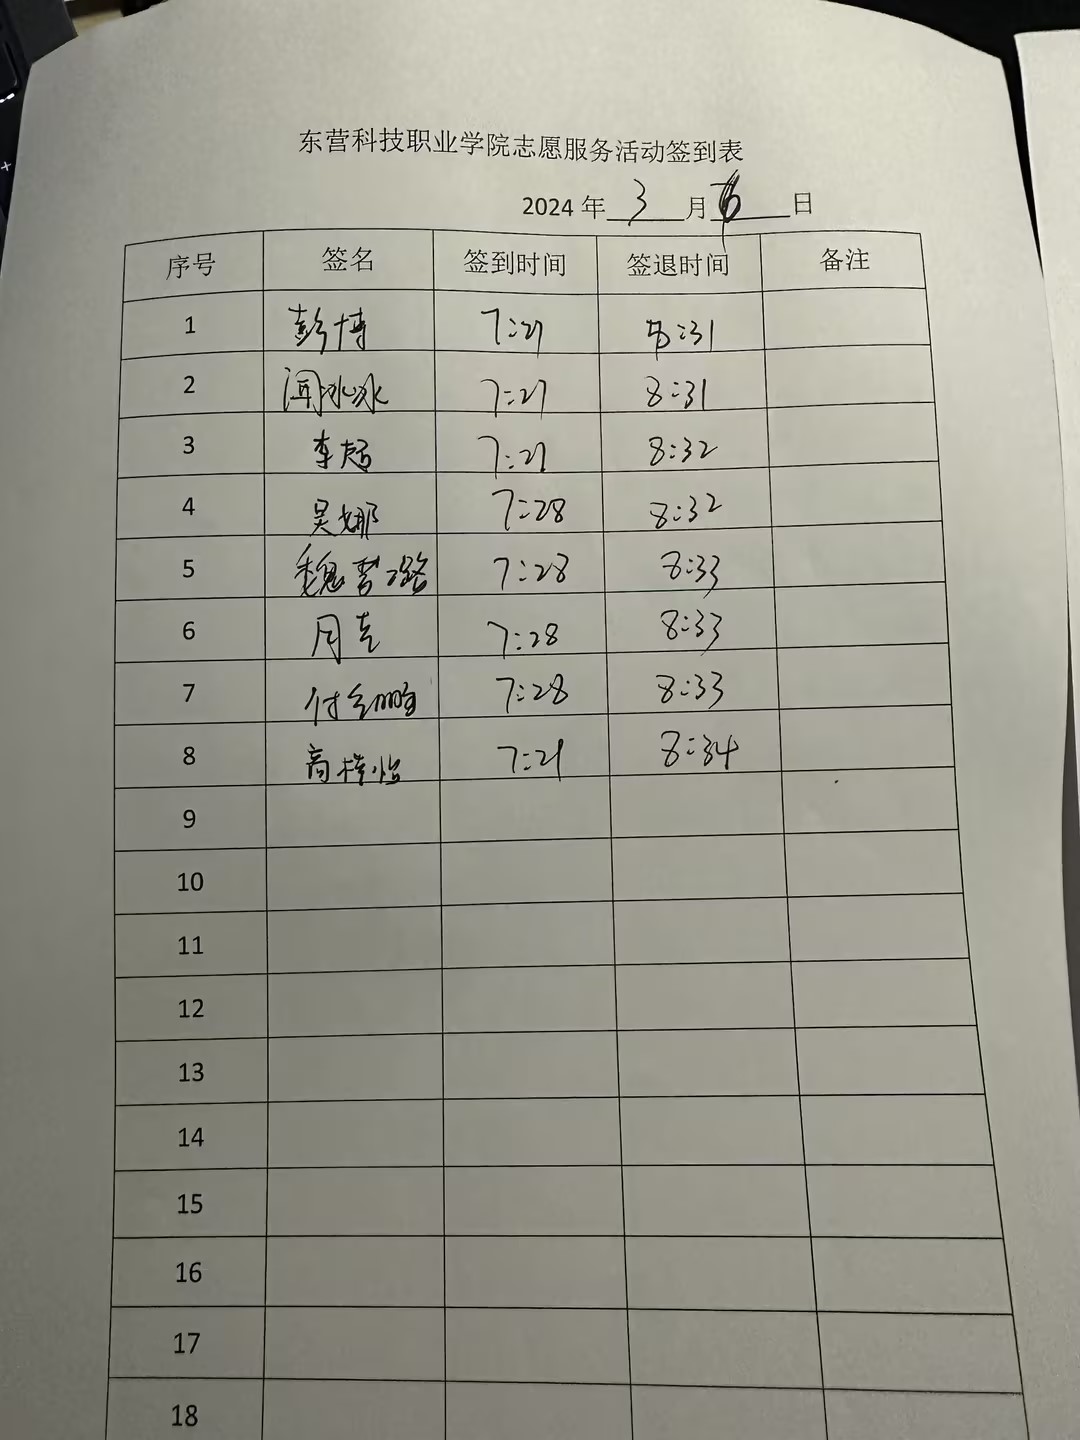 东营科技职业学院志愿服务活动签到表
2024 年 3 月 日
序号 签名 签到时间 签退时间 备注
1 彭博 7:27 8:31
2 闻冰冰 7:27 8:31
3 李超 7:27 8:32
4 吴娜 7:28 8:32
5 魏梦璐 7:28 8:33
6 7:28 8:33
7 7:28 8:33
8 高梓怡 7:21 8:34
9
10
11
12
13
14
15
16
17
18